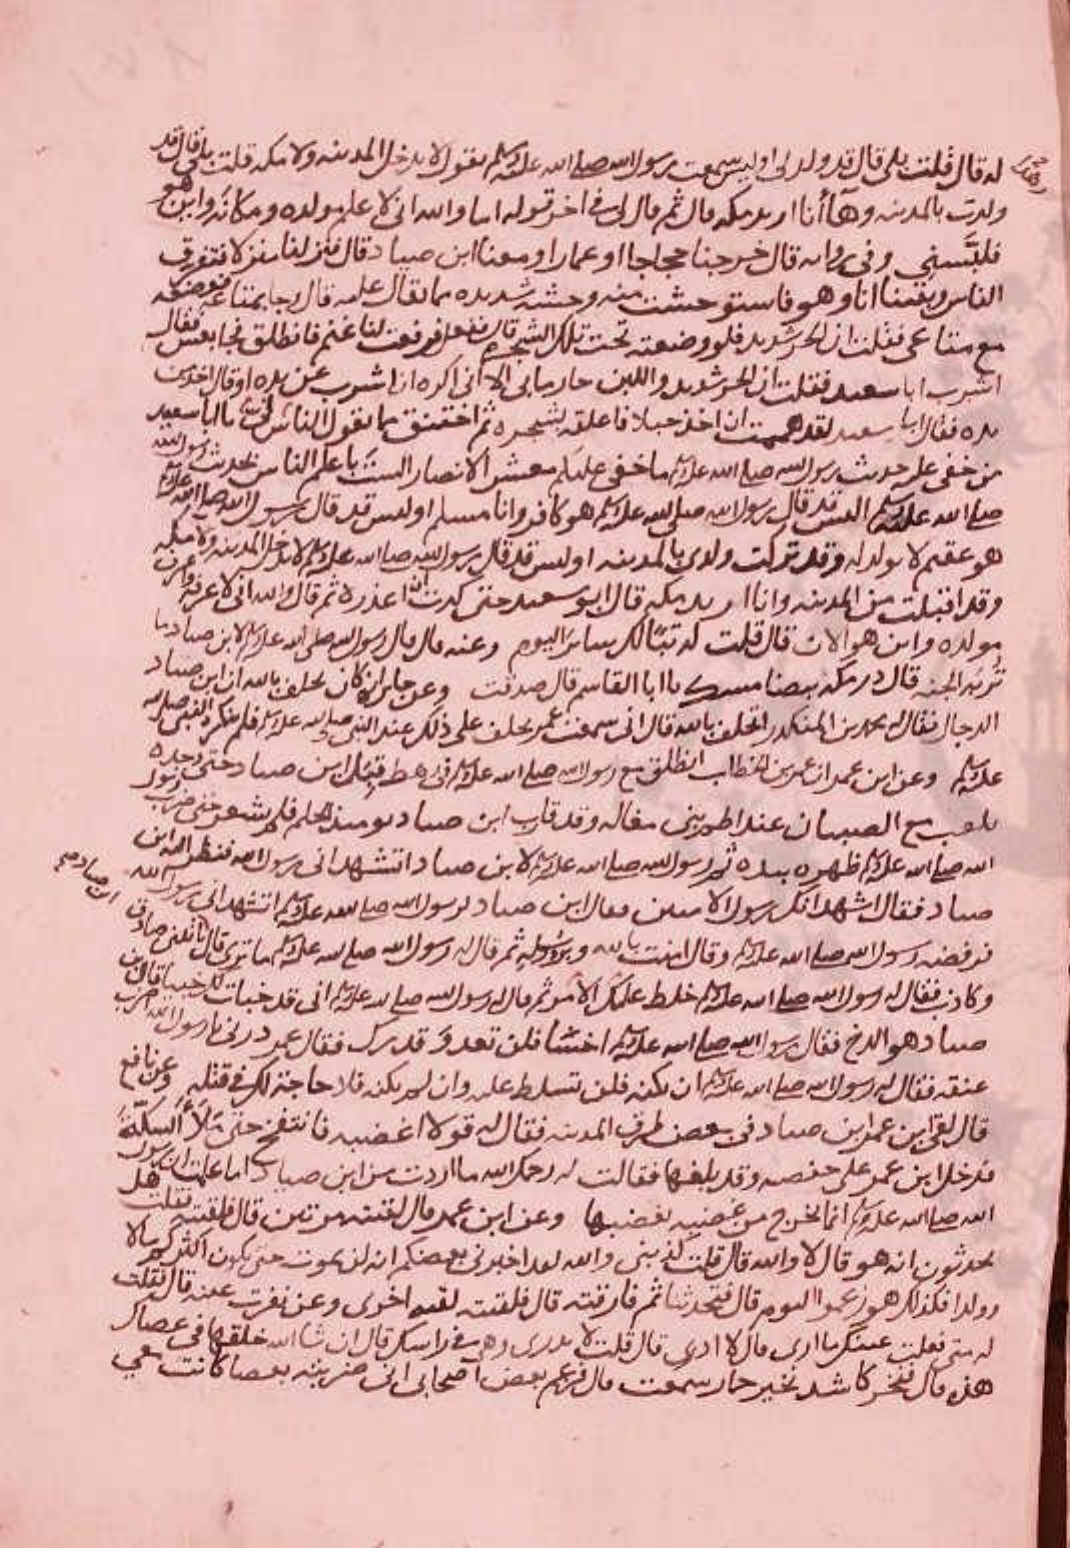 له قال قلت بلى قال قد ولد لى اوليس سمعت رسول الله صلى الله عليه وسلم يقول لا يدخل المدينه ولا مكه قلت بلى قال قد
ولدت بالمدينه وها أنا اريد مكه قال ثم قال لى فى اخر قوله اما والله انى لاعلم مولده ومكانه واين هو
فلبَّسنى وفى روايه قال خرجنا حجاجا او عمارا ومعنا ابن صياد قال فنزلنا منزلا فتفرق
الناس وبقيت انا وهو فاستوحشت منه وحشه شديده مما يقال عليه قال وجا بمتاعه فوضعه
مع متاعى فقلت ان الحر شديد فلو وضعته تحت تلك الشجره قال ففعل فرفعت لنا غنم فانطلق فجا بعس فقال
اشرب ابا سعيد فقلت ان الحر شديد واللبن حار ما بى الا انى اكره ان اشرب عن يده او قال اخذ من
يده فقال ابا سعيد لقد هممت ان اخذ حبلا فاعلقه بشجره ثم اختنق مما يقول الناس لى يا ابا سعيد
من خفى عليه حديث رسول الله صلى الله عليه وسلم ما خفى عليكم معشر الانصار الستَ با علم الناس بحديث رسول الله
صلى الله عليه وسلم اليس قد قال رسول الله صلى الله عليه وسلم هو كافر وانا مسلم اوليس قد قال رسول الله صلى الله عليه وسلم
هو عقيم لا يولد له وقد تركت ولدى بالمدينه اوليس قد قال رسول الله صلى الله عليه وسلم لا يدخل المدينه ولا مكه
وقد اقبلت من المدينه وانا اريد مكه قال ابو سعيد حتى كدت ان اعذره ثم قال والله انى لاعرفه واعرف
مولده واين هو الان قال قلت له تبًّا لك سائر اليوم وعنه قال قال رسول الله صلى الله عليه وسلم لابن صياد ما
تربه الجنه قال درمكه بيضا مسك يا ابا القاسم قال صدقت وعن جابر انه كان يحلف بالله ان ابن صياد
الدجال فقال له محمد بن المنكدر اتحلف بالله قال انى سمعت عمر يحلف على ذلك عند النبى صلى الله عليه وسلم فلم ينكره النبى صلى الله
عليه وسلم وعن ابن عمر ان عمر بن الخطاب انطلق مع رسول الله صلى الله عليه وسلم فى رهط قِبَل ابن صياد حتى وجده
يلعب مع الصبيان عند اطم بنى مغاله وقد قارب ابن صياد يومئذ الحلم فلم يشعر حتى ضرب رسول
الله صلى الله عليه وسلم ظهره بيده ثم رسول الله صلى الله عليه وسلم لابن صياد اتشهد انى رسول الله فنظر اليه ابن
صياد فقال اشهد انك رسول الاميين فقال ابن صياد لرسول الله صلى الله عليه وسلم اتشهد انى رسول الله
فرفضه رسول الله صلى الله عليه وسلم وقال امنت بالله وبرسوله ثم قال له رسول الله صلى الله عليه وسلم ما ترى قال يأتينى صادق
وكاذب فقال له رسول الله صلى الله عليه وسلم خلط عليك الامر ثم قال له رسول الله صلى الله عليه وسلم انى قد خبات لك خبيا قال ابن
صياد هو الدخ فقال رسول الله صلى الله عليه وسلم اخسأ فلن تعدوَ قدرك فقال عمر درنى يا رسول الله اضرب
عنقه فقال له رسول الله صلى الله عليه وسلم ان يكنه فلن تسلط عليه وان لم يكنه فلا حاجة لك فى قتله وعن نافع
قال لقى ابن عمر ابن صياد فى بعض طرق المدينه فقال له قولا اغضبه فانتفخ حتى مَلَأَ السكّةَ
فدخل ابن عمر على حفصه وقد بلغها فقالت له رحمك الله ما اردت من ابن صياد اما علمت ان رسول
الله صلى الله عليه وسلم انما يخرج من غضبه يغضبها وعن ابن عمر قال لقيته مرتين قال فلقيته فقلت هل
تحدثون انه هو قال لا والله قال قلت كذبتنى والله لقد اخبرنى بعضكم انه لن يموت حتى يكون اكثركم مالا
وولدا فكذلك هو زعموا اليوم قال فتحدثنا ثم فارقته قال فلقيته لقيه اخرى وعن نفرت عينه قال فقلت
له متى فعلت عينك ما ارى قال لا ادرى قال قلت لا يدرى وهى فى راسك قال ان شا الله خلقها فى عصاك
هذه قال فنخر كاشد نخير حمار سمعت قال فزعم بعض اصحابى انى ضربته بعصا كانت معى